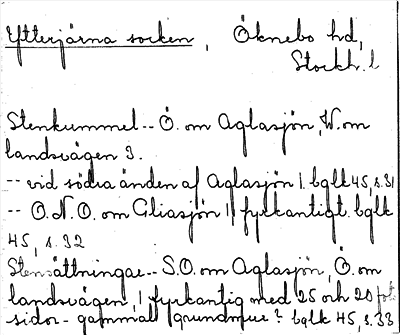 Ytterjärna socken, Öknebo hd,
Stockh. l
Stenkummel -- Ö. om Aglasjön, W. om
landsvägen 3.
-- vid södra änden af Aglasjön 1. bglk 45, s. 31
-- O.N.O. om Gliasjön 1 fyrkantigt. bglk
45, s. 32
Stensättningar -- S.O. om Aglasjön, Ö. om
landsvägen, 1 fyrkantig med 25 och 20 fots
sidor - gammal grundmur? bglk 45, s. 33